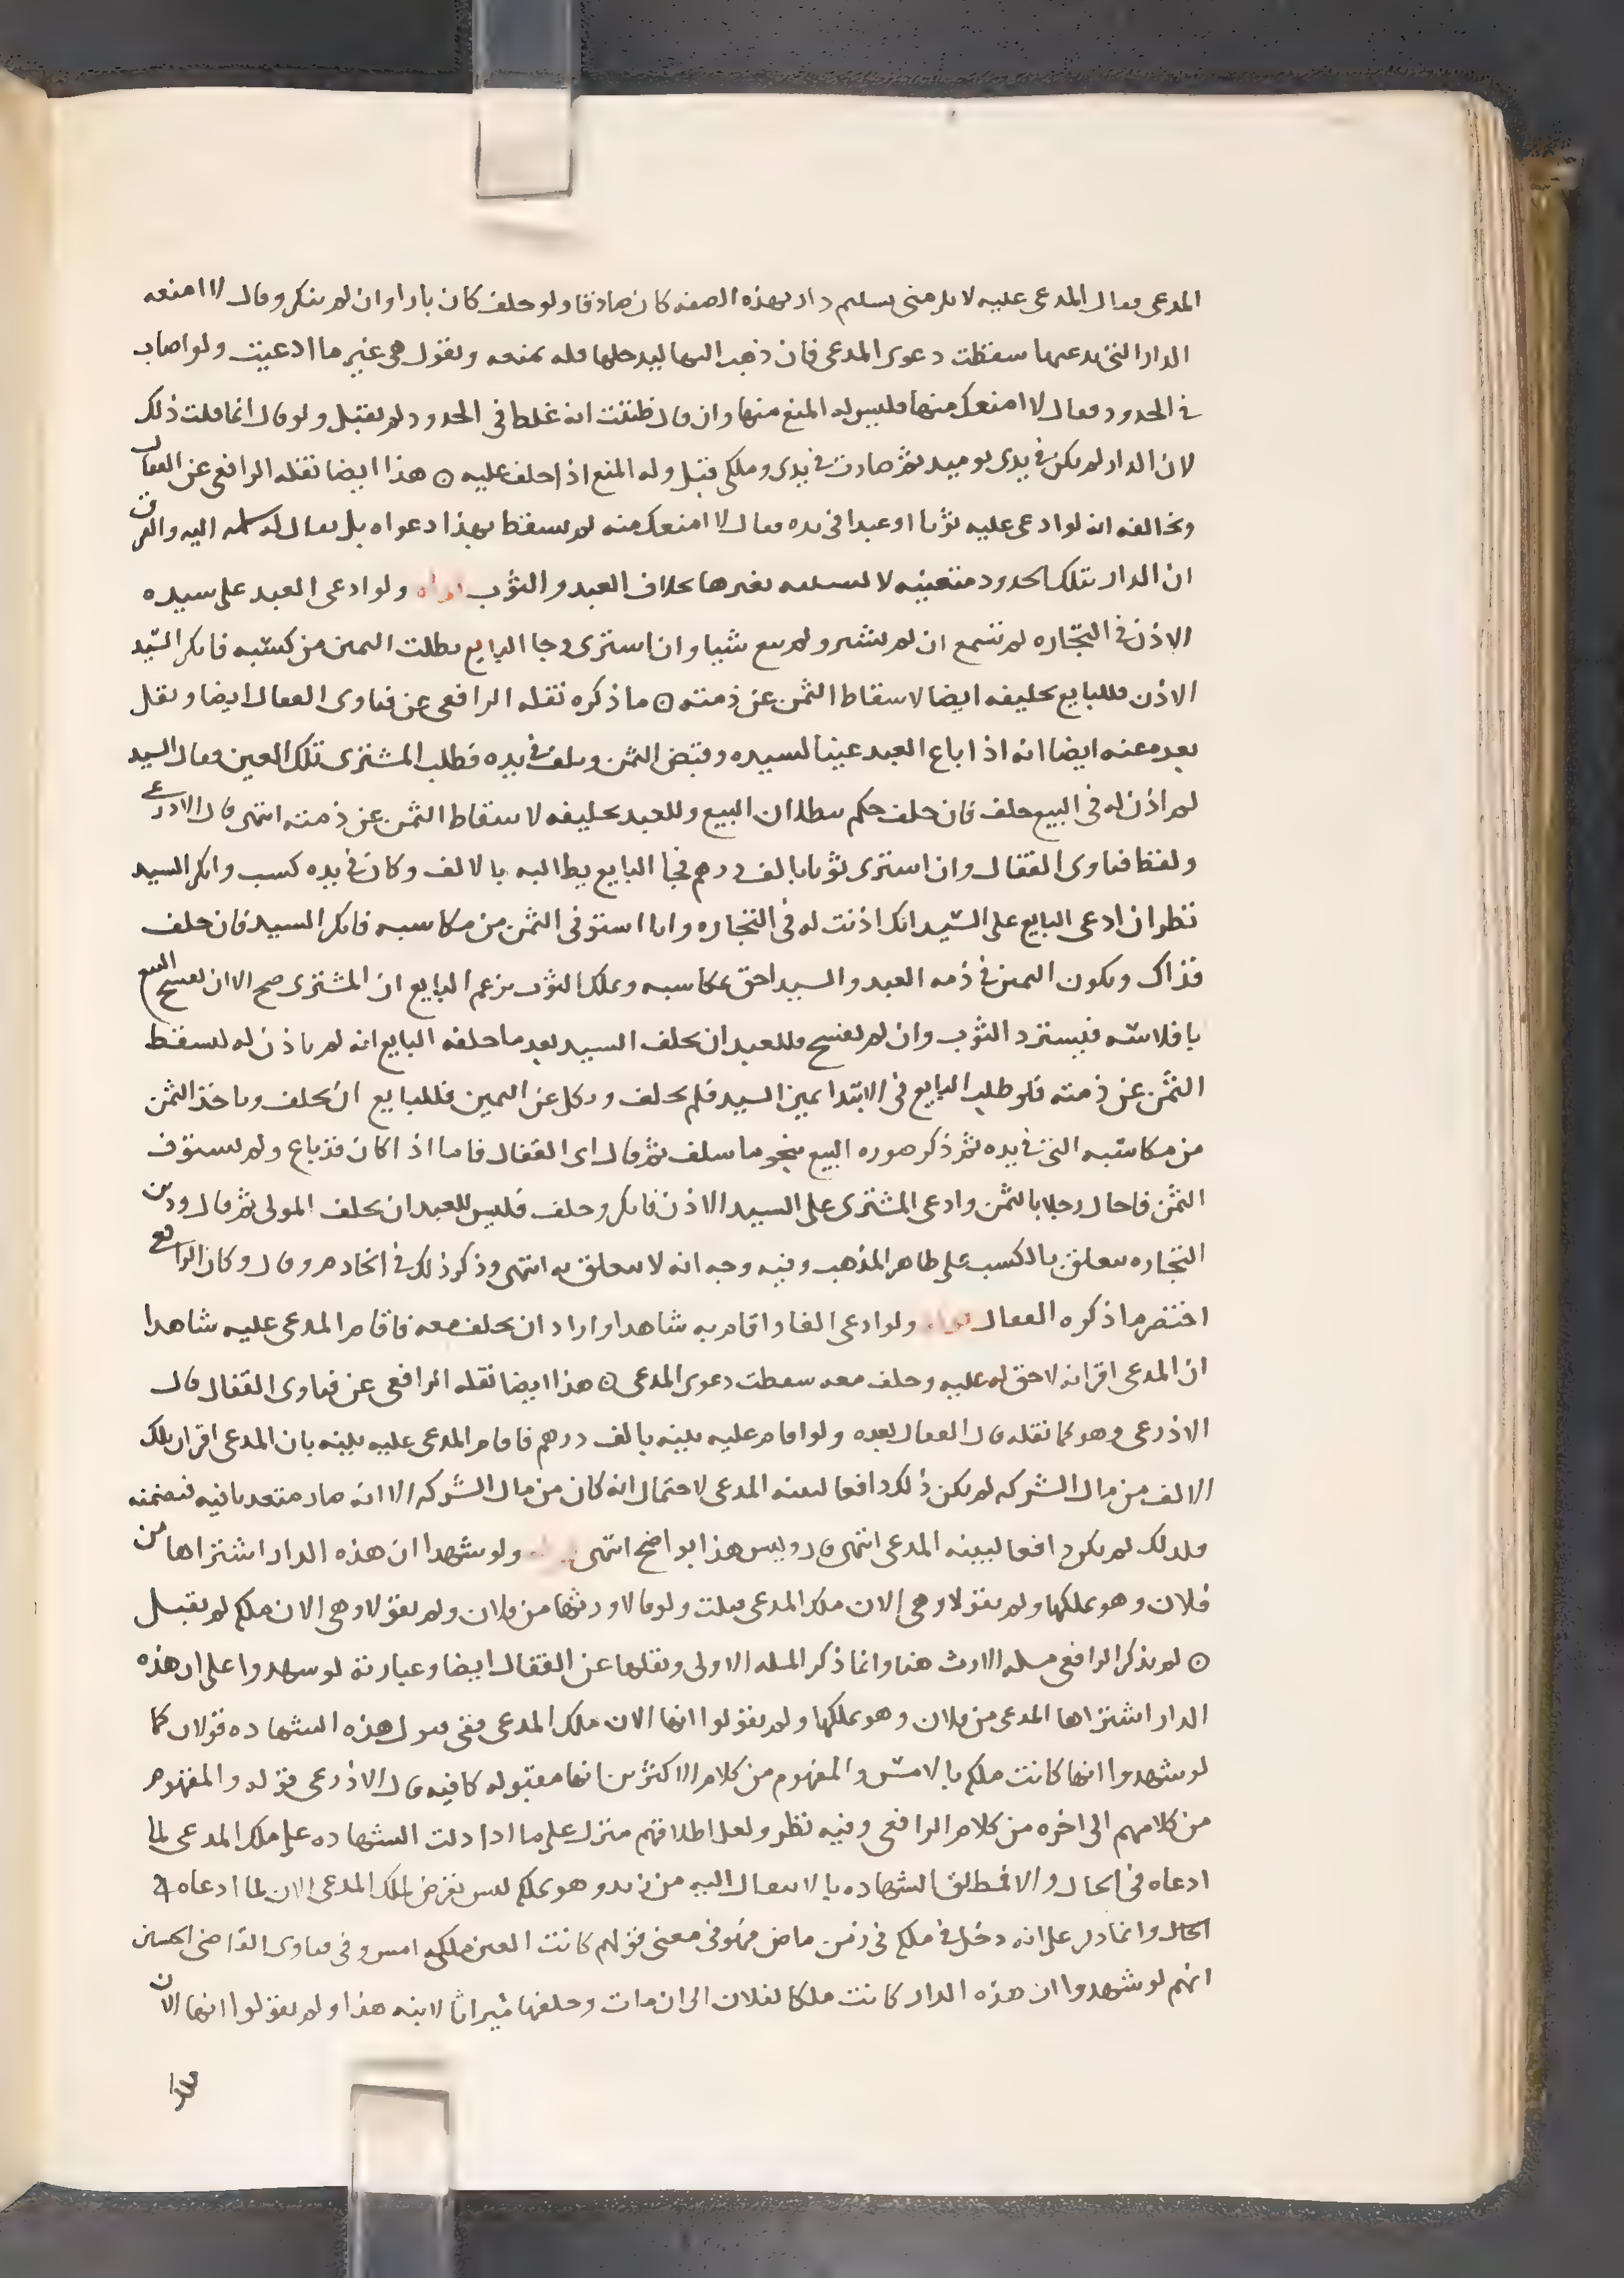 المدعى فقال المدعى عليه لا يلزمنى تسليم دار بهذه الصفه كان صادقا ولو حلف كان بارا وان لم ينكر وقال لا امنعه
الدار التى يدعيها سقطت دعوى المدعى فان ذهب اليها ليدخلها فله منعه ويقول هى غير ما ادعيت ولو اصاب
فى الحدود فقال لا امنعك منها فليس له المنع منها وان قال ظننت انه غلط فى الحدود لم يقبل ولو قال انما قلت ذلك
لان الدار لم يكن فى يدى يوميد ثم صارت فى يدى وملكى قبل وله المنع اذا حلف عليه ⊙ هذا ايضا نقله الرافعى عن القفال
ويخالفه انه لو ادعى عليه ثوبا او عبدا فى يده فقال لا امنعك منه لم يسقط بهذا دعواه بل يقال له سلمه اليه والفرق
ان الدار بتلك الحدود متعينه لا تستبه بغيرها بخلاف العبد والثوب ولو ادعى العبد على سيده
الاذن فى التجاره لم تسمع ان لم يشتر ولم يبع شيا وان اشترى وجا البايع يطلب الثمن من كسبه فانكر السيد
الاذن فللبايع تحليفه ايضا لاسقاط الثمن عن ذمته ⊙ ما ذكره نقله الرافعى عن فتاوى القفال ايضا ونقل
بعده عنه ايضا انه اذا باع العبد عينا لسيده وقبض الثمن وتلف فى يده فطلب المشترى تلك العين وقال السيد
لم اذن له فى البيع حلف فان حلف حكم ببطلان البيع وللعبد تحليفه لاسقاط الثمن عن ذمته انتهى قال الاذرعى
ولفظ فتاوى القفال وان اشترى ثوبا بالف درهم فجا البايع يطالبه بالالف وكان فى يده كسب وانكر السيد
نظر ان ادعى البايع على السيد انك اذنت له فى التجاره وانا استوفى الثمن من مكاسبه فانكر السيد فان حلف
فذاك ويكون الثمن فى ذمه العبد والسيد احق بمكاسبه ويملك الثوب بزعم البايع ان المشترى صح الا ان يفسخ البيع
بافلاسه فيسترد الثوب وان لم يفسخ فللعبد ان يحلف السيد بعد ما حلفه البايع انه لم ياذن له ليسقط
الثمن عن ذمته فلو طلب البايع فى الابتدا يمين السيد فلم يحلف ونكل عن اليمين فللبايع ان يحلف وياخذ الثمن
من مكاسبه التى فى يده ثم ذكر صوره البيع بنحو ما سلف ثم قال اى القفال فاما اذا كان قد باع ولم يستوف
الثمن فاحال رجلا بالثمن وادعى المشترى على السيد الاذن فانكر وحلف فليس للعبد ان يحلف المولى ثم قال ودين
التجاره يتعلق بالكسب على ظاهر المذهب وفيه وجه انه لا يتعلق به انتهى وذكر ذلك فى الخادم وقال وكان الرافعى
اختصر ما ذكره القفال ولو ادعى الفا واقام به شاهدا واراد ان يحلف معه فاقام المدعى عليه شاهدا
ان المدعى اقر انه لا حق له عليه وحلف معه سقطت دعوى المدعى ⊙ هذا ايضا نقله الرافعى عن فتاوى القفال قال
الاذرعى وهو كما نقله قال القفال بعده ولو اقام عليه بينه بالف درهم فاقام المدعى عليه بينه بان المدعى اقر ان تلك
الالف من مال الشركه لم يكن ذلك دافعا لبينه المدعى لاحتمال انه كان من مال الشركه الا انه صار متعديا فيه فيضمنه
فلذلك لم يكن دافعا لبينه المدعى انتهى قال وليس هذا بواضح انتهى ولو شهدا ان هذه الدار اشتراها من
فلان وهو يملكها ولم يقولا وهى الان ملك المدعى قبلت ولو قالا ورثها من فلان ولم يقولا وهى الان ملكه لم يقبل
⊙ لم يذكر الرافعى مسله الارث هنا وانما ذكر المسله الاولى ونقلها عن القفال ايضا وعبارته لو شهدوا على ان هذه
الدار اشتراها المدعى من فلان وهو يملكها ولم يقولوا انها الان ملك المدعى ففى قبول هذه الشهاده قولان كما
لو شهدوا انها كانت ملكه بالامس والمفهوم من كلام الاكثرين انها مقبوله كافيه قال الاذرعى قوله والمفهوم
من كلامهم الى اخره من كلام الرافعى وفيه نظر ولعل اطلاقهم منزل على ما اذا دلت الشهاده على ملك المدعى لما
ادعاه فى الحال والا فمطلق الشهاده بالانتقال اليه من زيد وهو يملكه ليس بغرض لملك المدعى الان لما ادعاه فى
الحال وانما دل على انه دخل فى ملكه فى زمن ماض فهو فى معنى قولهم كانت العين ملكه امس وفى فتاوى القاضى الحسين
انهم لو شهدوا ان هذه الدار كانت ملكا لفلان الى ان مات وخلفها ميراثا لابنه هذا ولم يقولوا انها الان